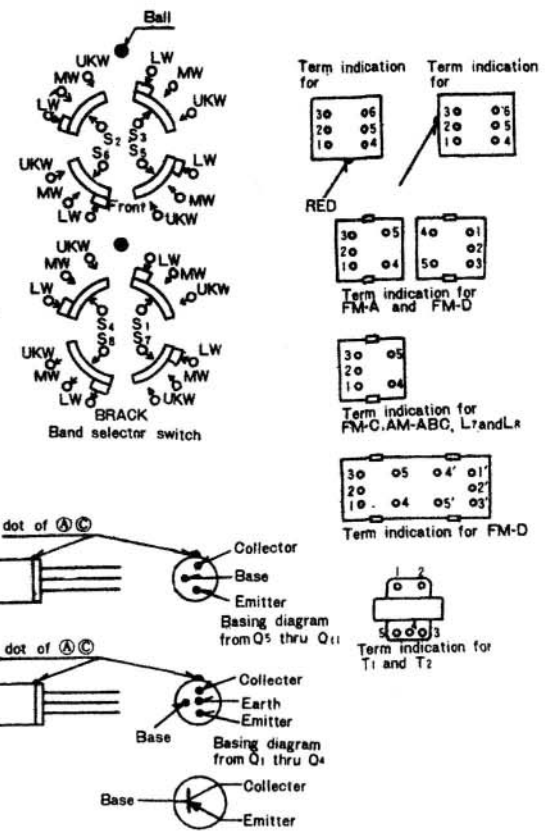 Ball
LW
UKW
MW
MW
LW
UKW
S2
S3
S6
S5
LW
MW
MW
LW
Front
UKW
UKW
LW
MW
MW
LW
UKW
S4
S1
S8
S7
UKW
LW
MW
MW
LW
UKW
BRACK
Band selector switch
Term indication
for
3 6
2 5
1 4
RED
Term indication
for
3 6
2 5
1 4
3 5
2
1 4
4 1
2
5 3
Term indication for
FM-A and FM-D
3 5
2
1 4
Term indication for
FM-C,AM-ABC, L7andL8
3 5 4' 1'
2 2'
1 4 5' 3'
Term indication for FM-D
1 2
5 4 3
Term indication for
T1 and T2
dot of Ⓐ Ⓒ
Collector
Base
Emitter
Basing diagram
from Q5 thru Q11
dot of Ⓐ Ⓒ
Collecter
Earth
Emitter
Base
Basing diagram
from Q1 thru Q4
Base
Collecter
Emitter